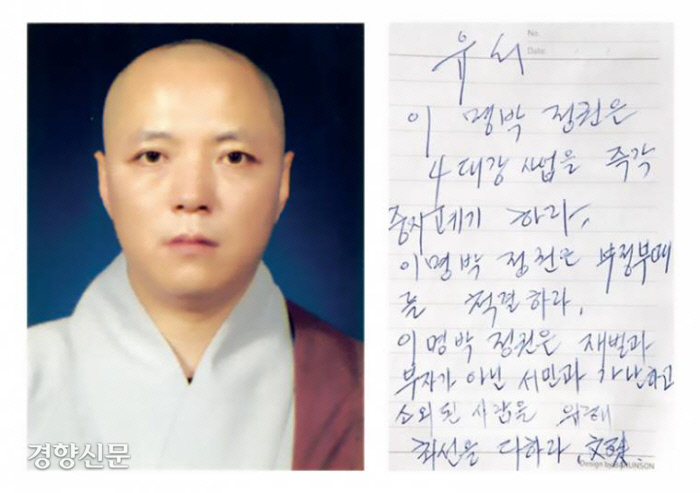 No.
Date
유서
이명박 정권은
4대강 사업을 즉각
중지 폐기 하라,
이명박 정권은 부정부패
를 척결하라,
이명박 정권은 재벌과
부자가 아닌 서민과 가난하고
소외된 사람을 위해
최선을 다하라 文殊.
경향신문